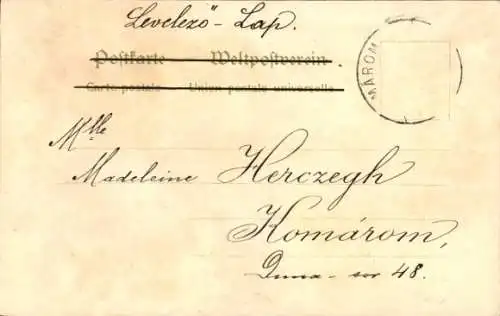 Levelező-Lap.
Postkarte Weltpostverein.
Carte postale Union postale universelle
MÁROM
Mlle
Madeleine Herczegh
Komárom,
Duna-sor 48.